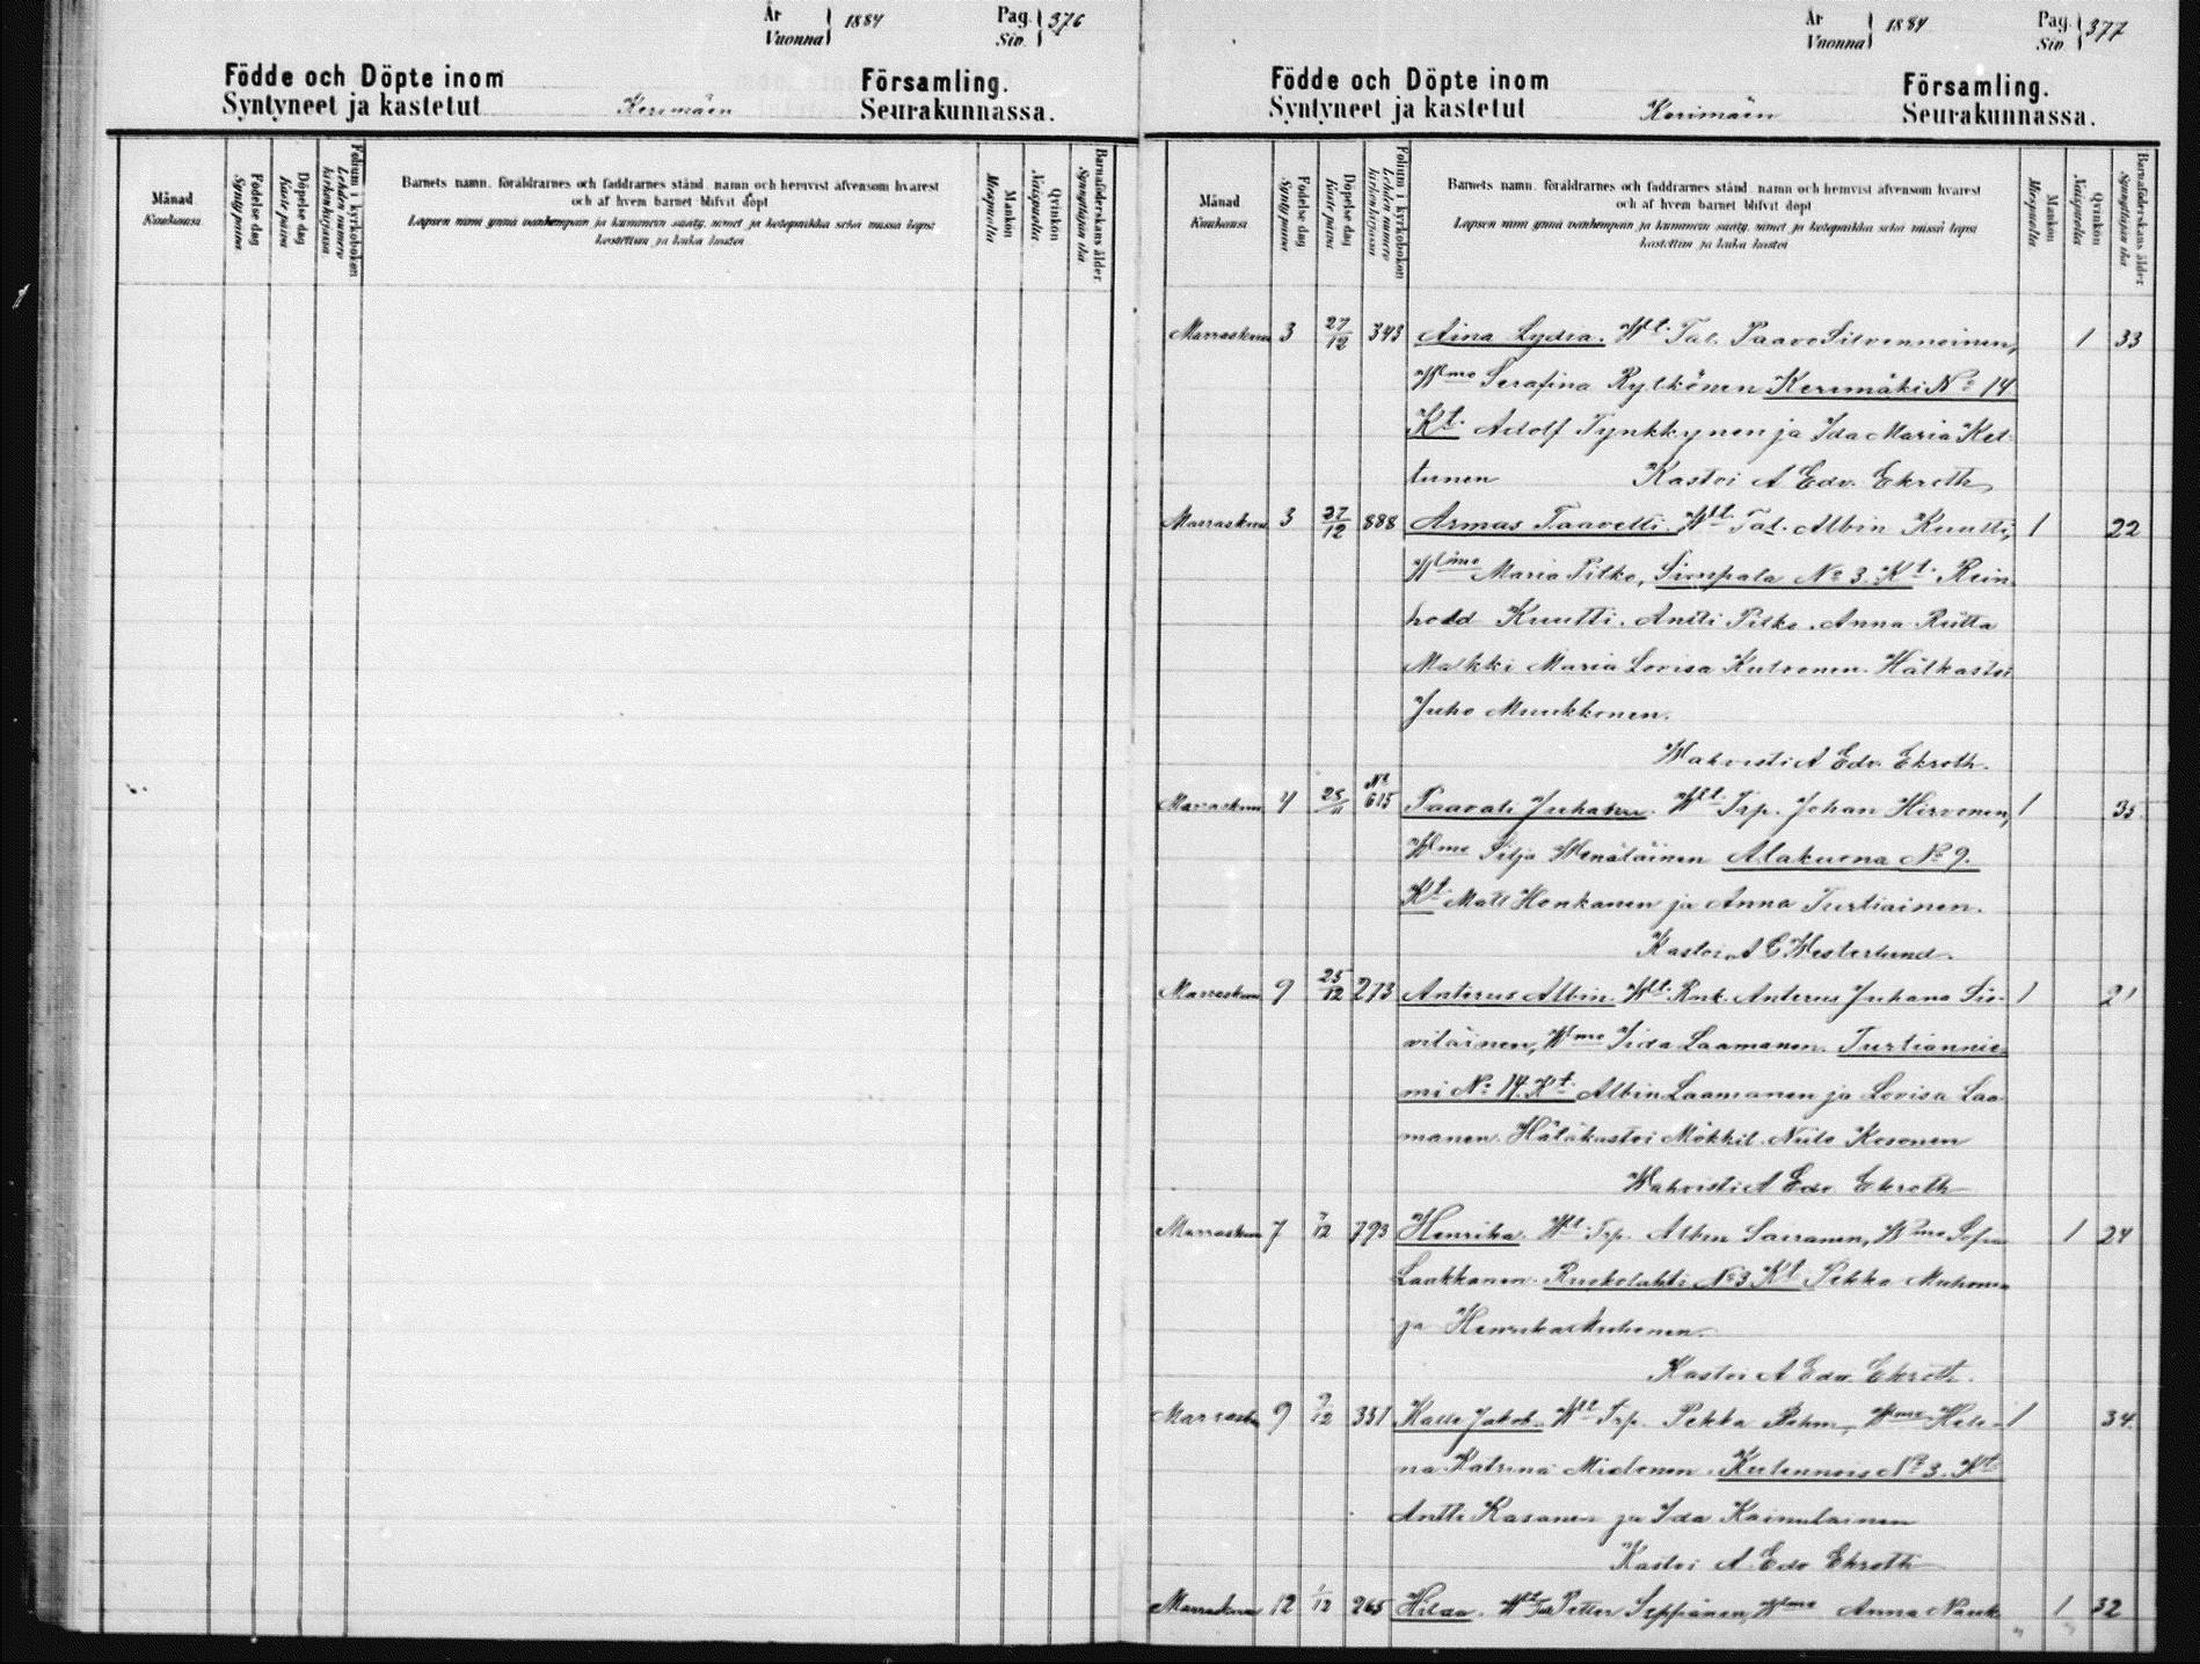 År
Vuonna } 1884
Pag.
Siv. } 376
Födde och Döpte inom
Syntyneet ja kastetut Kerimäen
Församling.
Seurakunnassa.
Månad
Kuukausi
Födelse dag
Synty päivä
Döpelse dag
Kaste päivä
Folium i kyrkoboken
Lehden numero
kirkonkirjassa
Barnets namn, föräldrarnes och faddrarnes stånd, namn och hemvist äfvensom hvarest
och af hvem barnet blifvit döpt
Lapsen nimi ynnä vanhempain ja kummein sääty, nimet ja kotopaikka sekä missä lapsi
kastettiin ja kuka kastoi
Mankön
Miespuolia
Qvinkön
Naispuolia
Barnaföderskans ålder
Synnyttäjän ikä
År
Vuonna } 1884
Pag.
Siv. } 377
Födde och Döpte inom
Syntyneet ja kastetut Kerimäen
Församling.
Seurakunnassa.
Månad
Kuukausi
Födelse dag
Synty päivä
Döpelse dag
Kaste päivä
Folium i kyrkoboken
Lehden numero
kirkonkirjassa
Barnets namn, föräldrarnes och faddrarnes stånd, namn och hemvist äfvensom hvarest
och af hvem barnet blifvit döpt
Lapsen nimi ynnä vanhempain ja kummein sääty, nimet ja kotopaikka sekä missä lapsi
kastettiin ja kuka kastoi
Mankön
Miespuolia
Qvinkön
Naispuolia
Barnaföderskans ålder
Synnyttäjän ikä
Marraskuu 3 27/12 343 Aina Lydia. Wt. Tal. Paavo Silvennoinen, 1 33
Wmo Serafina Rytkönen Kerimäki No 14
Kt. Adolf Tynkkynen ja Ida Maria Ket
tunen Kastoi A Edv. Ekroth
Marraskuu 3 27/12 888 Armas Taavetti. Wt. Tal. Albin Kuutti, 1 22
Wmo Maria Pitko, Simpala No 3. Kt. Rein
hold Kuutti. Antti Pitko. Anna Riitta
Malkki Maria Lovisa Kutvonen. Hätkastoi
Juho Muukkonen.
Wahvisti A Edv. Ekroth.
Marraskuu 4 25/11 No 615 Paavali Juhana. Wt. Irp. Johan Hirvonen, 1 35
Wmo Silja Wenäläinen Alakuona No 9.
Kt. Matt Honkanen ja Anna Turtiainen.
Kastoi A E Westerlund.
Marraskuu 9 25/12 273 Anterus Albin. Wt. Rnk. Anterus Juhana Sie- 1 21
viläinen, Wmo Iida Laamanen. Turtiannie
mi No 14. Kt. Albin Laamanen ja Lovisa Laa
manen. Hätäkastoi Mökkil. Niilo Kosonen
Wahvisti A Edv Ekroth
Marraskuu 7 7/12 793 Henrika. Wt. Irp. Albin Sairanen, Wmo Sofia 1 24
Laakkonen. Ruokolahti No 3 Kt. Pekka Muhonen
ja Henrika Muhonen.
Kastoi A Edv. Ekroth.
Marrask 9 9/12 351 Kalle Jakob. Wt Irp. Pekka Behm, Wmo Hele- 1 34.
na Katrina Mielonen. Kulennois No 3. Kt.
Antti Kasanen ja Ida Kainulainen
Kastoi A. Edv Ekroth
Marraskuu 12 1/12 265 Hilda. Wt Tal Petter Seppänen, Wmo Anna Nauk 1 32